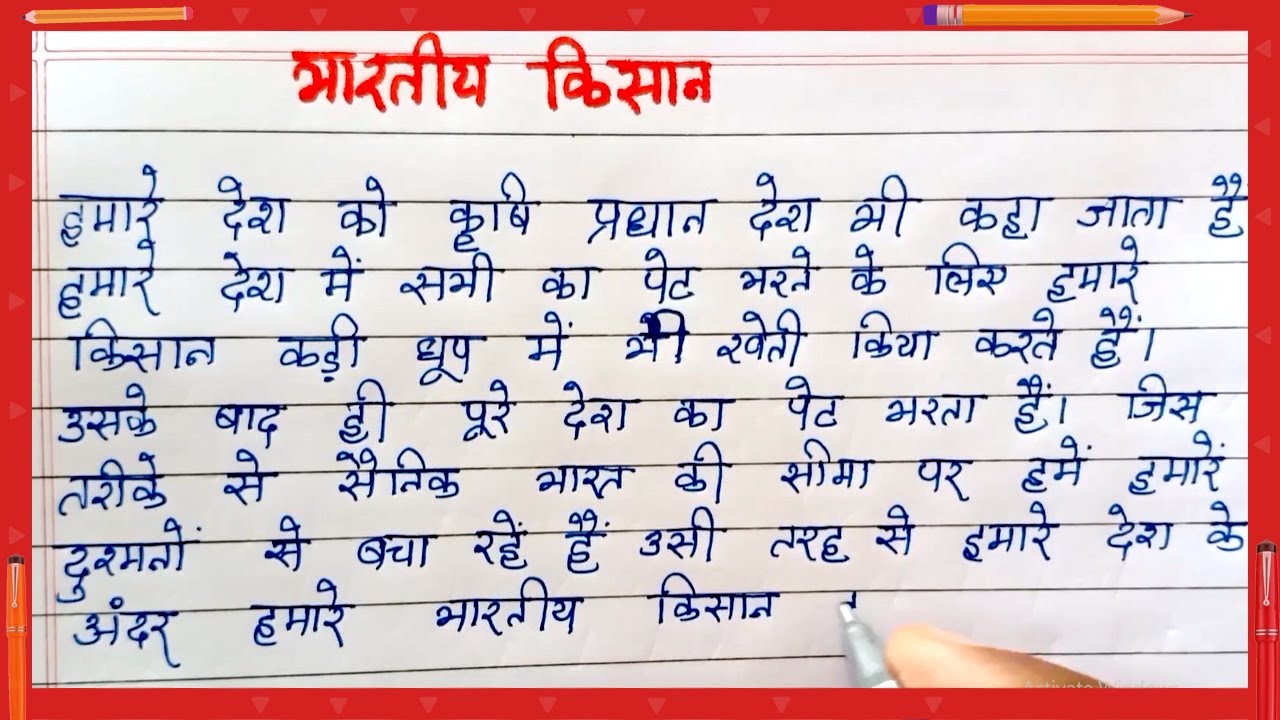 भारतीय किसान
हमारे देश को कृषि प्रधान देश भी कहा जाता है
हमारे देश में सभी का पेट भरने के लिए हमारे
किसान कड़ी धूप में भी खेती किया करते हैं।
उसके बाद ही पूरे देश का पेट भरता हैं। जिस
तरीके से सैनिक भारत की सीमा पर हमें हमारें
दुश्मनों से बचा रहें हैं उसी तरह से हमारे देश के
अंदर हमारे भारतीय किसान
Activate Windows